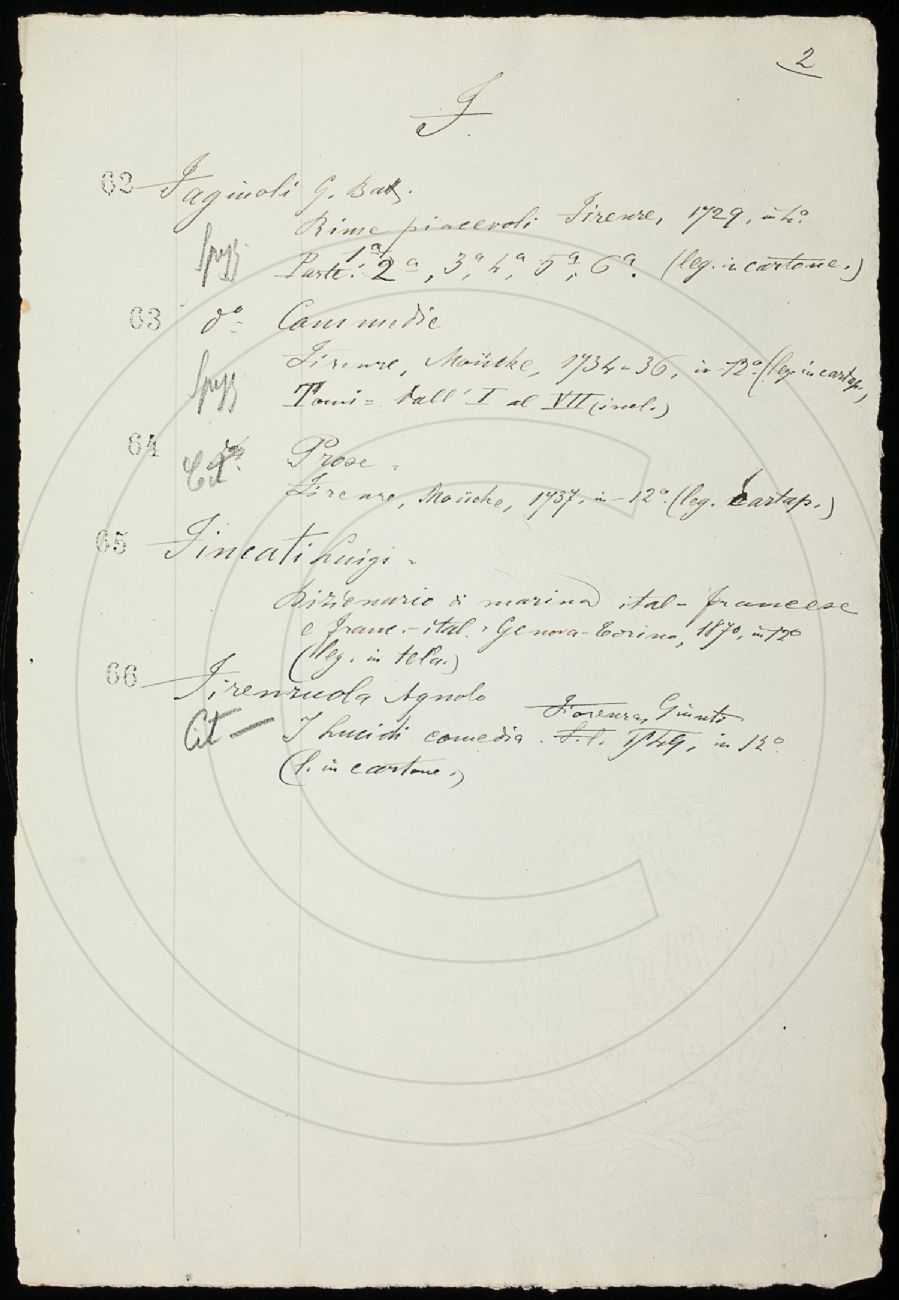 2
F.
62 Fagiuoli G. Bat.
Rime piacevoli Firenze, 1729, in 4º
Parte: 1ª 2ª, 3ª, 4ª, 5ª, 6ª. (leg. in cartone.)
63 dº Commedie
Firenze, Moücke, 1734-36, in-12º (leg. in cartap.)
Tomi = dall' I al VII (incl.)
64 Cit dº Prose.
Firenze, Moücke, 1737, in-12º (leg. cartap.)
65 Fincati Luigi.
Dizionario di marina ital-francese
e franc.-ital. Genova-Torino, 1870, in 12º
(leg. in tela.)
66 Firenzuola Agnolo
Fiorenza, Giunti
Cit — I Lucidi comedia. S.l. 1549, in 12º
(l. in cartone.)